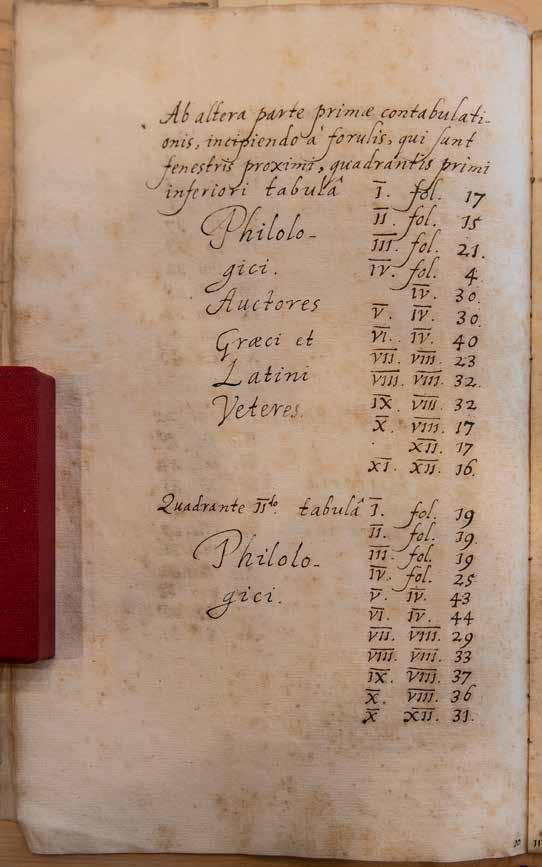 Ab altera parte primæ contabulati-
onis, incipiendo à forulis, qui sunt
fenestris proximi, quadrantis primi
inferiori tabulâ I. fol. 17
II. fol. 15
Philolo- III. fol. 21.
gici. IV. fol. 4.
IV. 30.
Auctores V. IV. 30.
Græci et VI. IV. 40
VII. VIII. 23
Latini VIII. VIII. 32.
Veteres. IX. VIII. 32
X. VIII. 17
XII. 17
XI. XII. 16.
Quadrante II.do tabulâ I. fol. 19
II. fol. 19.
Philolo- III. fol. 19
IV. fol. 25
gici. V. IV. 43
VI. IV. 44
VII. VIII. 29
VIII. VIII. 33
IX. VIII. 37
X. VIII. 36
X XII. 31.